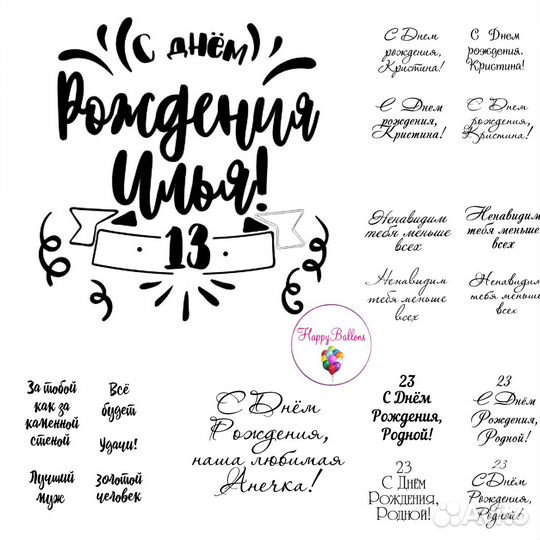 С ДНЁМ
Рождения
Илья!
13
С Днем
рождения,
Кристина!
С Днем
рождения.
Кристина!
С Днем
рождения,
Кристина!
С Днем
рождения,
Кристина!
Ненавидим
тебя меньше
всех
Ненавидим
тебя меньше
всех
Ненавидим
тебя меньше
всех
Ненавидим
тебя меньше
всех
HappyBallons
За тобой
как за
каменной
стеной
Всё
будет
Удачи!
Лучший
муж
Золотой
человек
С Днём
Рождения,
наша любимая
Анечка!
23
С Днём
Рождения,
Родной!
23
С Днём
Рождения,
Родной!
23
С Днём
Рождения,
Родной!
23
С Днём
Рождения,
Родной!
Avito